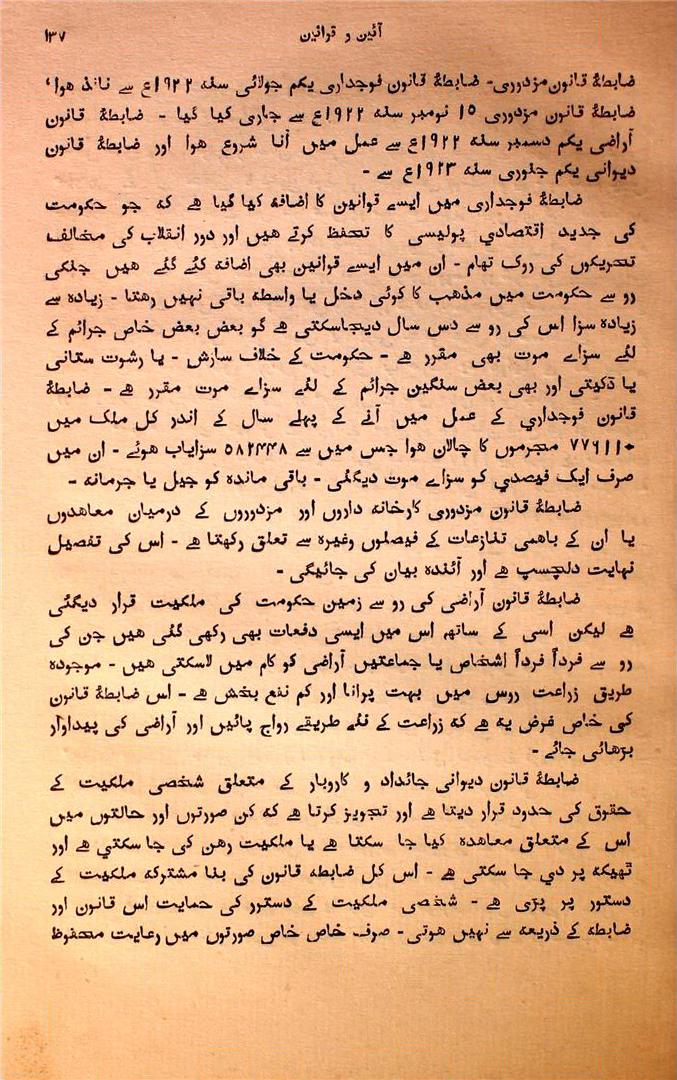 آئین و قوانین ۱۳۷
ضابطۂ قانون مزدوری۔ ضابطۂ قانون فوجداری یکم جولائی سنہ ۱۹۲۲ع سے نافذ ہوا،
ضابطۂ قانون مزدوری ۱۵ نومبر سنہ ۱۹۲۲ع سے جاری کیا گیا ۔ ضابطۂ قانون
آراضی یکم دسمبر سنہ ۱۹۲۲ع سے عمل میں آنا شروع ہوا اور ضابطۂ قانون
دیوانی یکم جنوری سنہ ۱۹۲۳ع سے ۔
ضابطۂ فوجداری میں ایسے قوانین کا اضافہ کیا گیا ہے کہ جو حکومت
کی جدید اقتصادي پولیسی کا تحفظ کرتے ہیں اور دور انقلاب کی مخالف
تحریکوں کی روک تھام ۔ ان میں ایسے قوانین بھی اضافہ کئے گئے ہیں جنکی
رو سے حکومت میں مذہب کا کوئی دخل یا واسطہ باقی نہیں رہتا ۔ زیادہ سے
زیادہ سزا اس کی رو سے دس سال دیجاسکتی ہے گو بعض بعض خاص جرائم کے
لئے سزاے موت بھی مقرر ہے ۔ حکومت کے خلاف سازش ۔ یا رشوت ستانی
یا ڈکیتی اور بھی بعض سنگین جرائم کے لئے سزاے موت مقرر ہے ۔ ضابطۂ
قانون فوجداري کے عمل میں آنے کے پہلے سال کے اندر کل ملک میں
۷۷۶۱۱۰ مجرموں کا چالان ہوا جس میں سے ۵۸۲۴۴۸ سزایاب ہوئے ۔ ان میں
صرف ایک فیصدي کو سزاے موت دیگئی ۔ باقی ماندہ کو جیل یا جرمانہ ۔
ضابطۂ قانون مزدوری کارخانہ داروں اور مزدوروں کے درمیان معاہدوں
یا ان کے باہمی تنازعات کے فیصلوں وغیرہ سے تعلق رکھتا ہے ۔ اس کی تفصیل
نہایت دلچسپ ہے اور آئندہ بیان کی جائیگی ۔
ضابطۂ قانون آراضی کی رو سے زمین حکومت کی ملکیت قرار دیگئی
ہے لیکن اسی کے ساتھ اس میں ایسی دفعات بھی رکھی گئی ہیں جن کی
رو سے فرداً فرداً اشخاص یا جماعتیں آراضی کو کام میں لاسکتی ہیں ۔ موجودہ
طریق زراعت روس میں بہت پرانا اور کم نفع بخش ہے ۔ اس ضابطۂ قانون
کی خاص غرض یہ ہے کہ زراعت کے نئے طریقے رواج پائیں اور آراضی کی پیداوار
بڑھائی جائے ۔
ضابطۂ قانون دیوانی جائداد و کاروبار کے متعلق شخصی ملکیت کے
حقوق کی حدود قرار دیتا ہے اور تجویز کرتا ہے کہ کن صورتوں اور حالتوں میں
اس کے متعلق معاہدہ کیا جا سکتا ہے یا ملکیت رہن کی جا سکتي ہے اور
ٹھیکہ پر دي جا سکتی ہے ۔ اس کل ضابطہ قانون کی بنا مشترکہ ملکیت کے
دستور پر پڑی ہے ۔ شخصی ملکیت کے دسترر کی حمایت اس قانون اور
ضابطہ کے ذریعہ سے نہیں ہوتی ۔ صرف خاص خاص صورتوں میں رعایت محفوظ